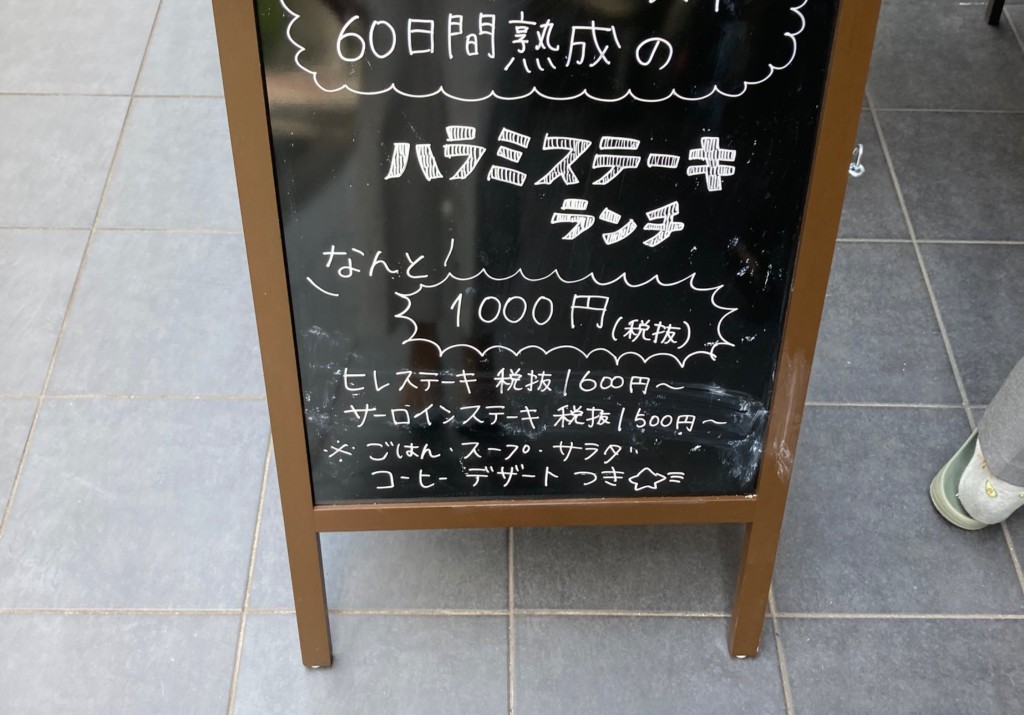 60日間熟成の
ハラミステーキ
ランチ
なんと!
1000円(税抜)
ヒレステーキ 税抜1600円〜
サーロインステーキ 税抜1500円〜
※ごはん・スープ・サラダ
コーヒー デザート つき☆